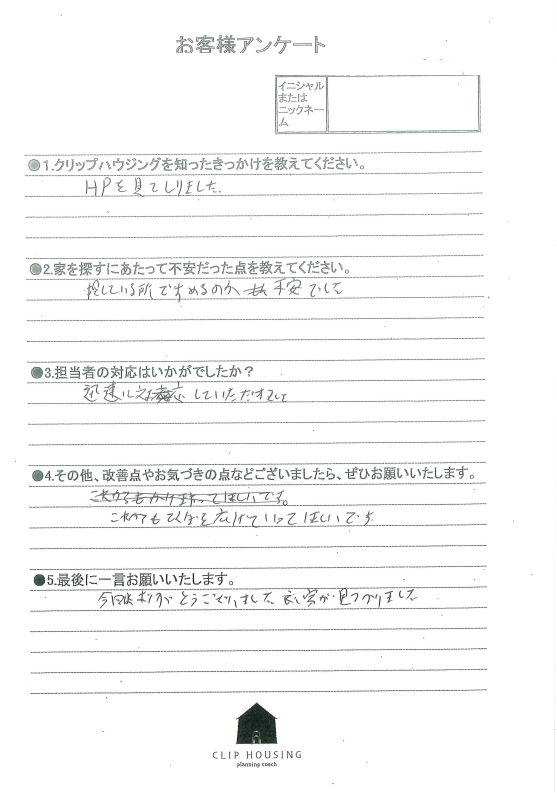 お客様アンケート
イニシャル
または
ニックネー
ム
●1.クリップハウジングを知ったきっかけを教えてください。
HPを見てしりました
●2.家を探すにあたって不安だった点を教えてください。
探している所ですめるのか 不安でした
●3.担当者の対応はいかがでしたか？
迅速に対応していただけました
●4.その他、改善点やお気づきの点などございましたら、ぜひお願いいたします。
これからも てってほしいです。
これからも を広げていってほしいです
●5.最後に一言お願いいたします。
今回はありがとうございました 良い家が見つかりました
CLIP HOUSING
planning coach